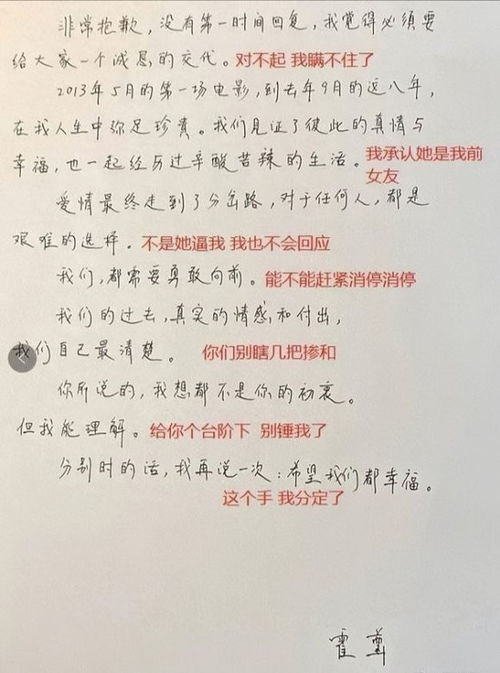 非常抱歉，没有第一时间回复，我觉得必须要
给大家一个诚恳的交代。对不起 我瞒不住了
2013年5月的第一场电影，到去年9月的这八年，
在我人生中弥足珍贵。我们见证了彼此的真情与
幸福，也一起经历过辛酸苦辣的生活。我承认她是我前
女友
爱情最终走到了分岔路，对于任何人，都是
艰难的选择。不是她逼我 我也不会回应
我们，都需要勇敢向前。能不能赶紧消停消停
我们的过去，真实的情感和付出，
我们自己最清楚。 你们别瞎几把掺和
你所说的，我想都不是你的初衷。
但我能理解。给你个台阶下 别锤我了
分别时的话，我再说一次：希望我们都幸福。
这个手 我分定了
霍尊